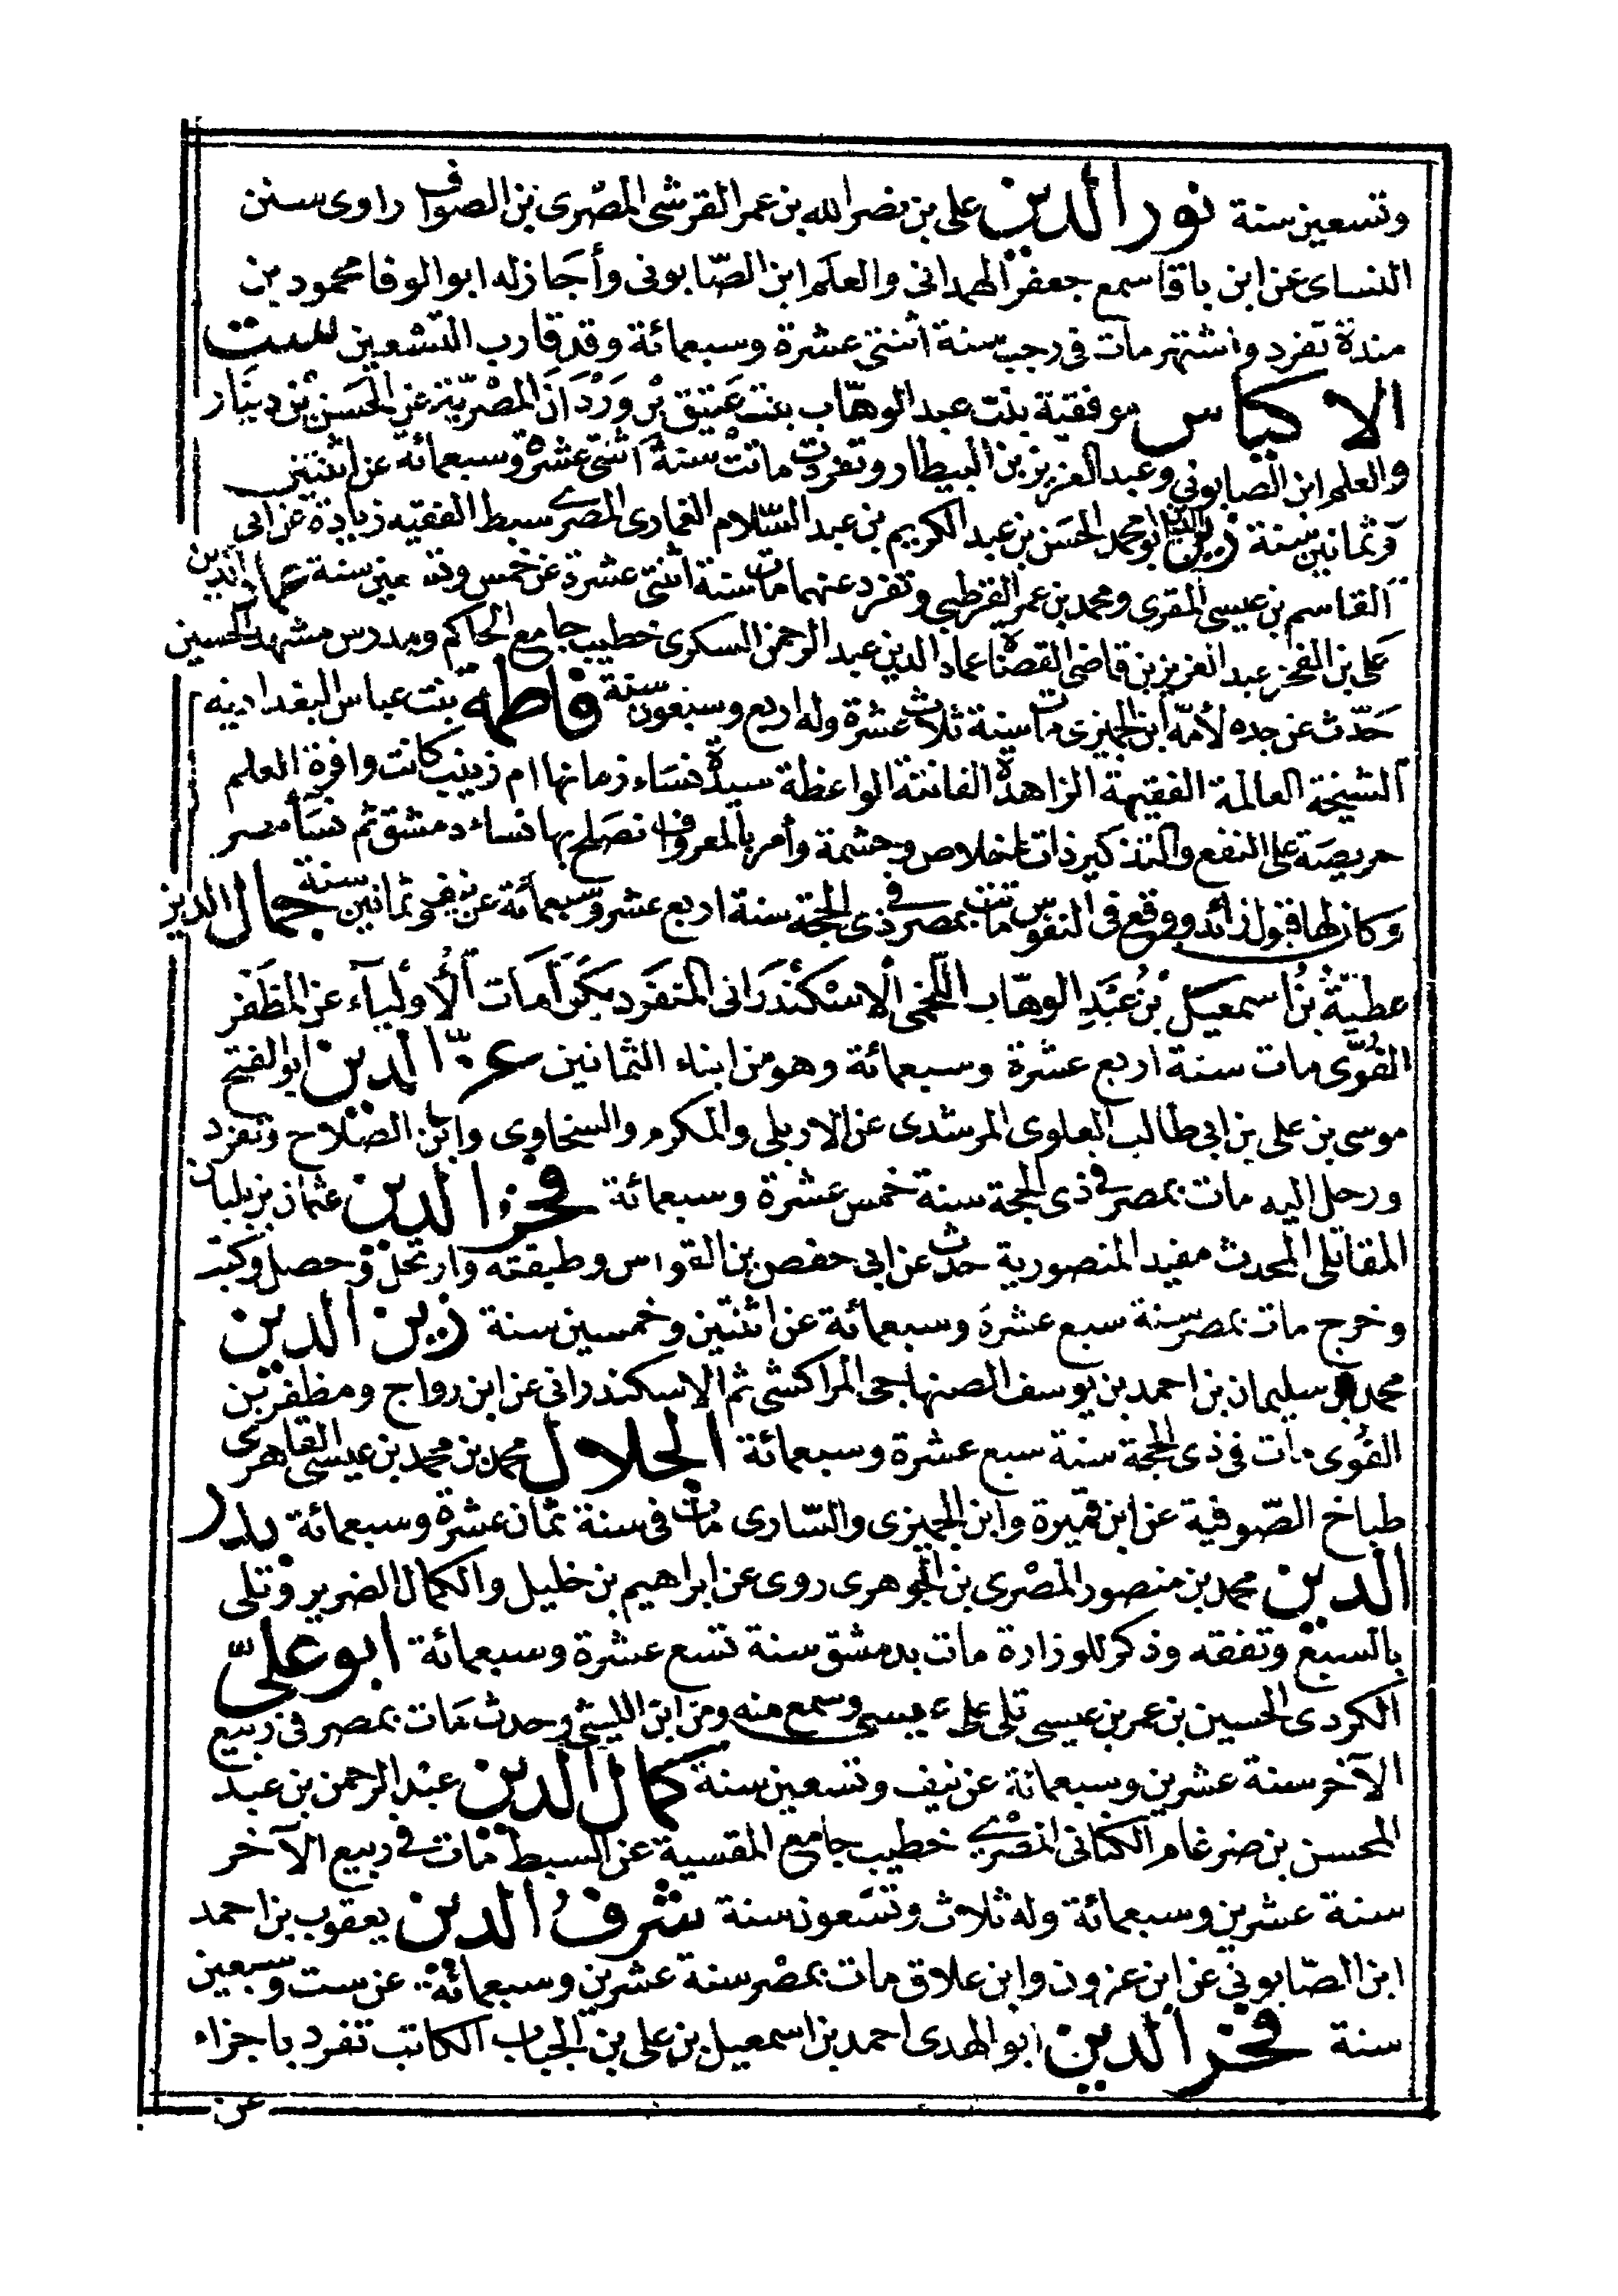 وتسعين سنة نور الدين على بن نصر الله بن عمر القرشى المصْرى بن الصواف راوى سنن
النساى عن ابن باقا سمع جعفر الهمدانى والعلم ابن الصّابونى وأجاز له ابو الوفا محمود بن
مندة تفرد واشتهر مات فى رجب سنة اثنتى عشرة وسبعمائة وقد قارب التسعين ست
الاكياس موفقية بنت عبد الوهّاب بنت عتيق بْن وَرْدَانَ المصْريّة عن الحسن بْن دينار
والعلم ابن الصابونى وعبد العزيز بن البيطار وتفردت ماتت سنة اثنتى عشرة وسبعمائة عن اثنتين
وثمانين سنة زين الدين ابو محمد الحسن بن عبد الكريم بن عبد السّلام الغمارى المصرى سبط الفقيه زيادة عن ابى
القاسم بن عيسى المقرى ومحمد بن عمر القرطبى وتفرد عنهما مات سنة اثنتى عشرة عن خمس وتسعين سنة عماد الدين
على بن الفخر عبد العزيز بن قاضى القضاة عماد الدين عبد الرحمن السكرى خطيب جامع الحاكم ومدرس مشهد الحسين
حَدّث عن جده لأمّه ابن الجميزى مات سنة ثلاث عشرة وله اربع وسبعون سنة فاطمة بنت عباس البغداديه
الشيخة العالمة الفقيهة الزاهدة القانتة الواعظة سيدة نساء زمانها ام زينب كانت وافرة العلم
حريصة على النفع والتذكير ذات اخلاص وحشمة وأمر بالمعروف انصلح بها نساء دمشق ثم نسأ مصر
وكان لها قبول زائد ووقع فى النفوس ماتت بمصر فى ذى الحجة سنة اربع عشر وسبعمائة عن نيف وثمانين سنة جمال الدين
عطيّة بْنُ اسمعيل بْن عَبْدِ الوهّاب اللّخمى الاسْكَنْدَرَانى المتفرد بكَرَامَات الأولياَء عن المظَفر
الفُوّى مات سنة اربع عشرة وسبعمائة وهو من ابناء الثمانين عزّ الدين ابو الفتح
موسى بن على بن ابى طالب العلوى المرشدى عن الاربلى والمكرم والسخاوى وابْن الصّلاح وتفرد
ورحل اليه مات بمصر فى ذى الحجة سنة خمس عشرة وسبعمائة فخر الدين عثمان بن بلبان
المقاتلى المحدث مفيد المنصورية حدث عن ابى حفص بن القواس وطبقته وارتحل وحصل وكتب
وخرج مات بمصر سنة سبع عشرة وسبعمائة عن اثنتين وخمسين سنة زين الدين
محمد بن سليمان بن احمد بن يوسف الصنهاجى المراكشى ثم الاسكندرانى عن ابن رواج ومظفر بْن
الفُوى مات فى ذى الحجة سنة سبع عشرة وسبعمائة الجلال محمد بن محمد بن عيسى القاهرى
طباخ الصّوفية عن ابن قميرة وابن الجميزى والسّارى مات فى سنة ثمان عشرة وسبعمائة بدر
الدين محمد بن منصور المصْرى بن الجوهرى روى عن ابراهيم بن خليل والكمال الضرير وتلى
بالسبع وتفقه وذكر للوزارة مات بدمشق سنة تسع عشرة وسبعمائة ابو علىّ
الكردى الحسين بن عمر بن عيسى تلى على عيسى وسمع منه ومن ابن الليثى وحدث مات بمصر فى ربيع
الآخر سنة عشرين وسبعمائة عن نيف وتسعين سنة كمال الدين عبْد الرحمن بن عبد
المحسن بن ضرغام الكنانى المصْرى خطيب جامع المقسية عن السبط مات فى ربيع الآخر
سنة عشرين وسبعمائة وله ثلاث وتسَعون سنة شرفُ الدين يعقوب بن احمد
ابن الصّابونى عن ابن عزون وابن علاق مات بمصْر سنة عشرين وسبعمائة عن ست وسبعين
سنة فخر الدين ابو الهدى احمد بن اسمعيل بن على بن الجباب الكاتب تفرد باجزاء
عن